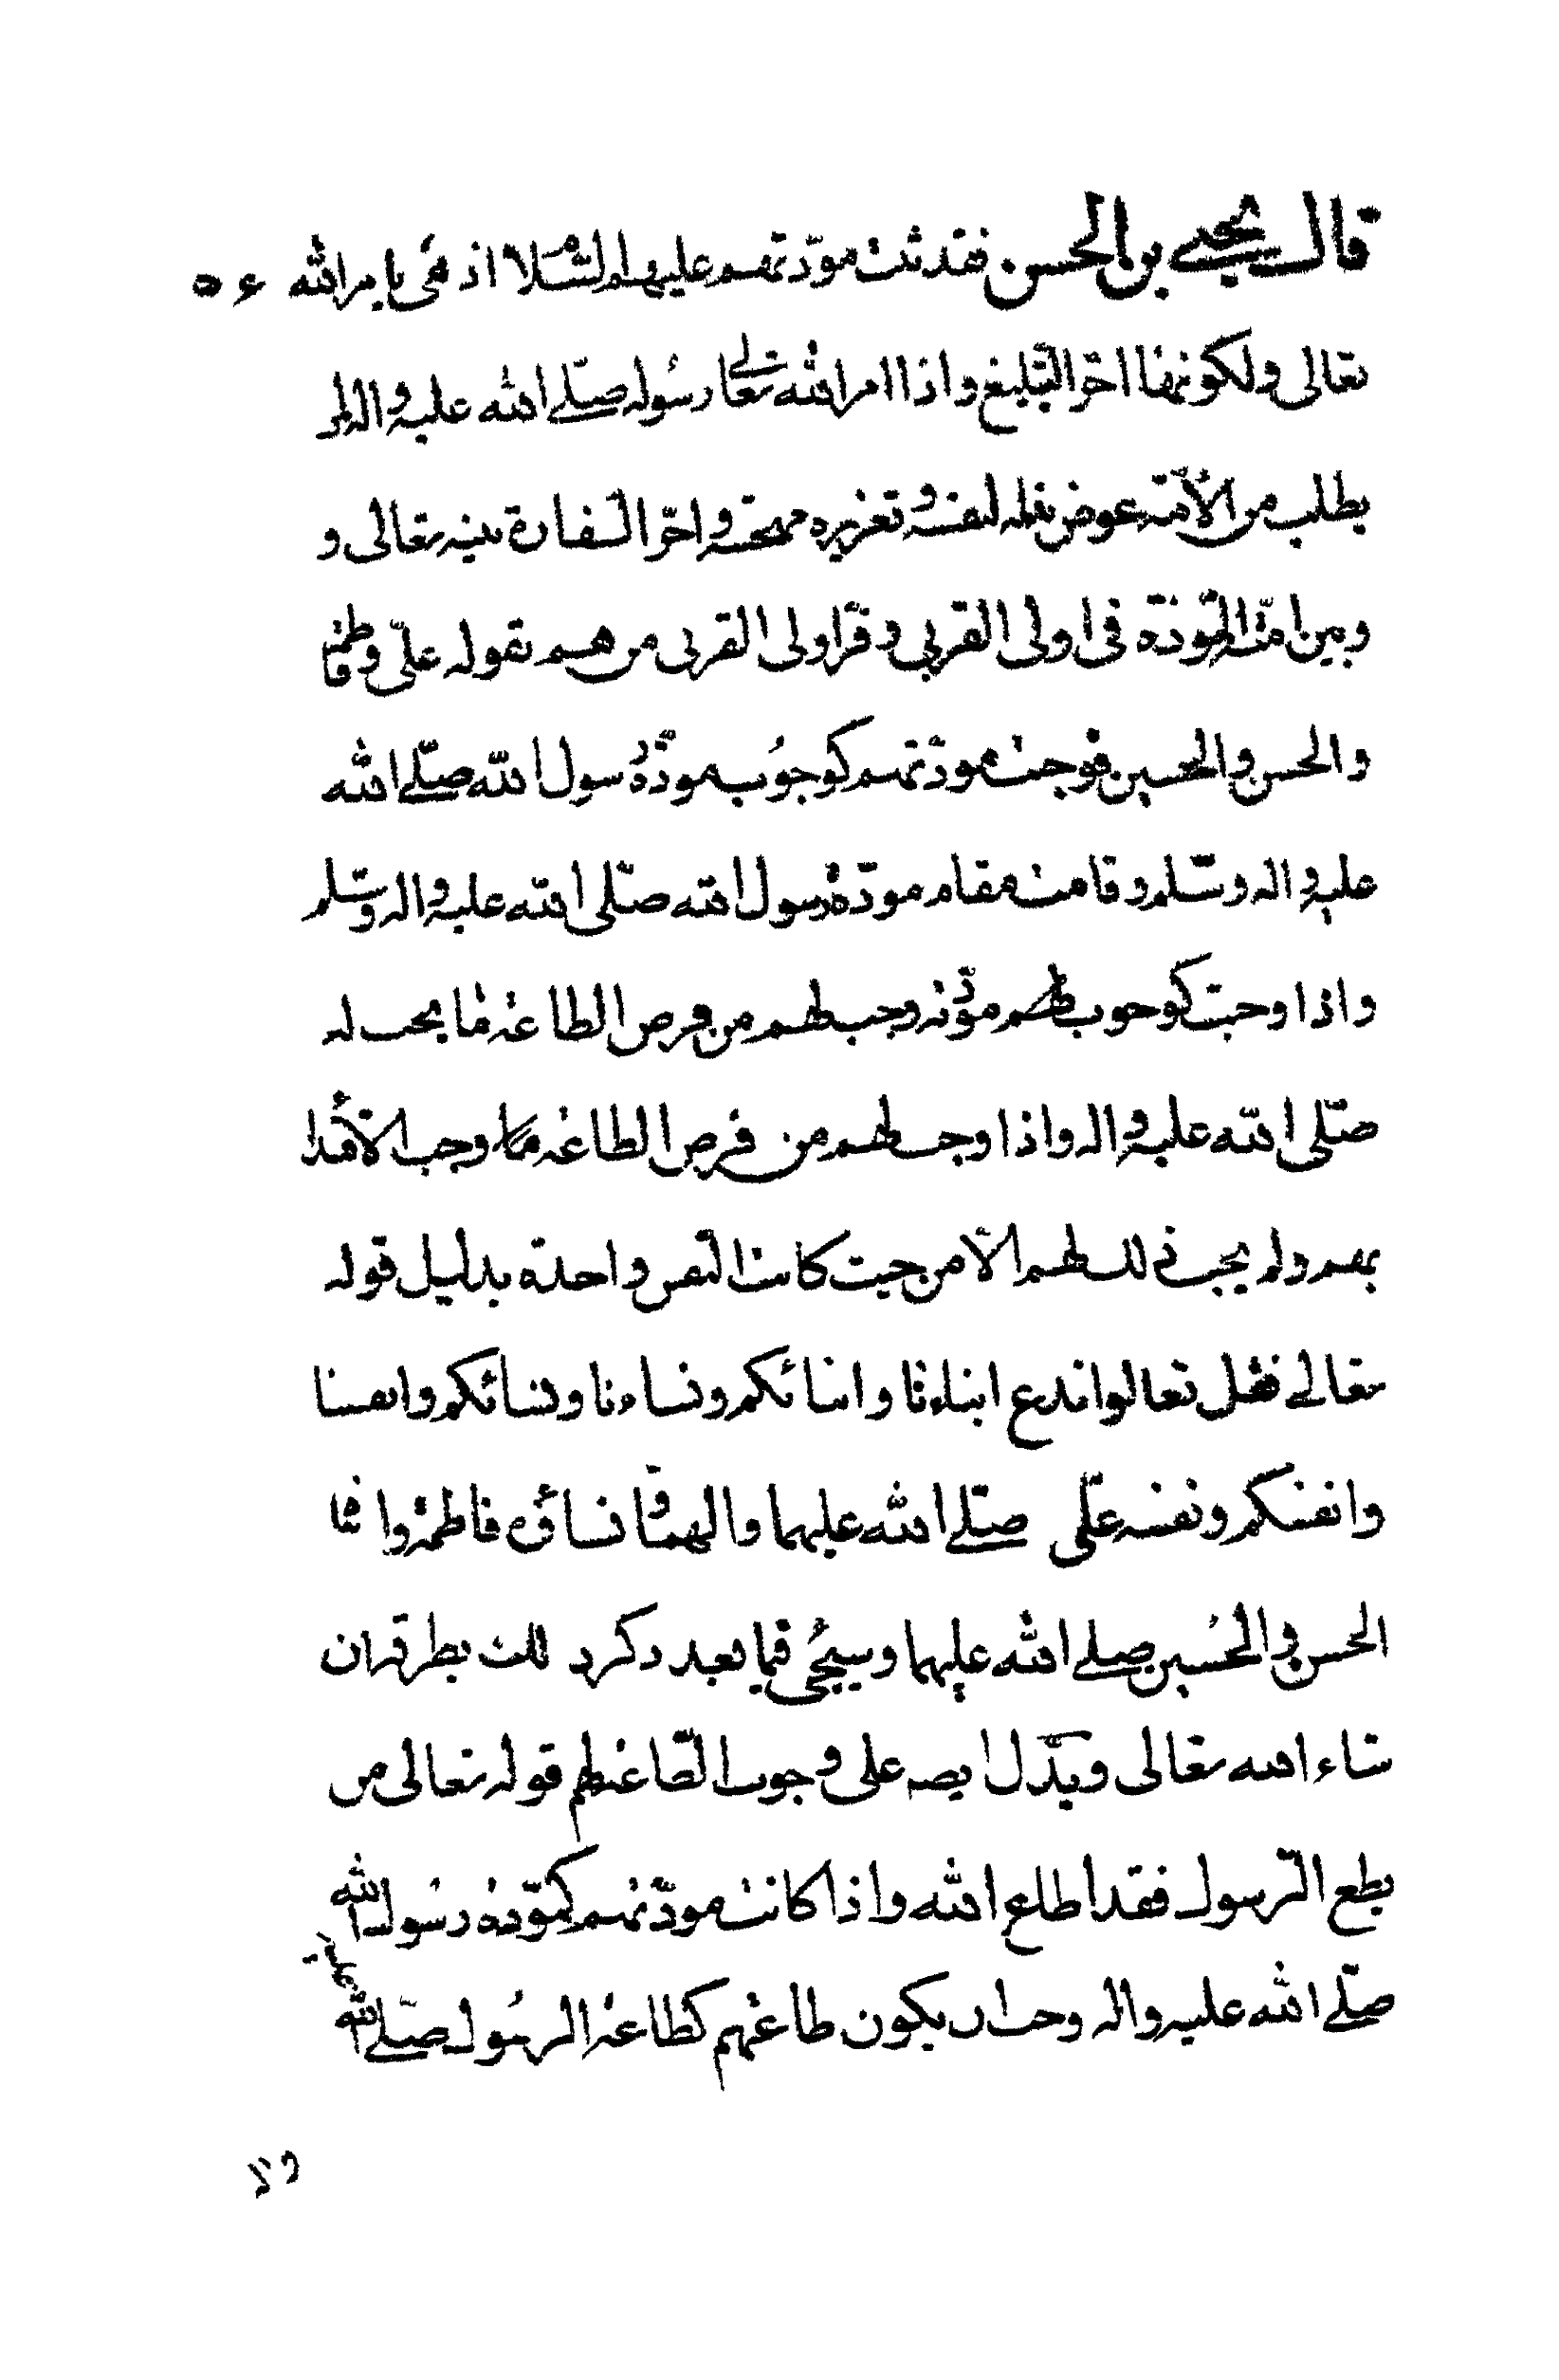 قال يحيى بن الحسن فقد ثبت مودتهم عليهم السلام اذ هى بامر الله ٤٥
تعالى ولكونها اجر التبليغ واذا امر الله تعالى رسوله صلى الله عليه واله
يطلب من الأمة عوض نفسه وتعزيره مهجته واجر السفارة بينه تعالى و
وبين امته المودة فى اولى القربى و اولى القربى من هم بقوله على وفاطمة
والحسن والحسين فوجبت مودتهم كوجوب مودة رسول الله صلى الله
عليه واله وسلم وقامت مقام مودة رسول الله صلى الله عليه واله وسلم
واذا وجبت كوجوب مودته وجب لهم من فرض الطاعة ما يجب له
صلى الله عليه واله واذا وجب لهم من فرض الطاعة وجب الاقتدا
بهم ولم يجب ذلك لهم الا من حيث كانت النفس واحدة بدليل قوله
تعالى فقل تعالوا ندع ابناءنا وابنائكم ونساءنا ونسائكم وانفسنا
وانفسكم ونفسه على صلى الله عليهما والهما ونساؤه فاطمة
الحسن والحسين صلى الله عليهما وسيجئ فيما بعد ذكر ذلك بطرقه ان
شاء الله تعالى ويدل ايضه على وجوب الطاعة لهم قوله تعالى من
يطع الرسول فقد اطاع الله واذا كانت مودتهم كمودة رسول الله
صلى الله عليه واله وجب ان يكون طاعتهم كطاعة الرسول صلى الله عليه
ولا